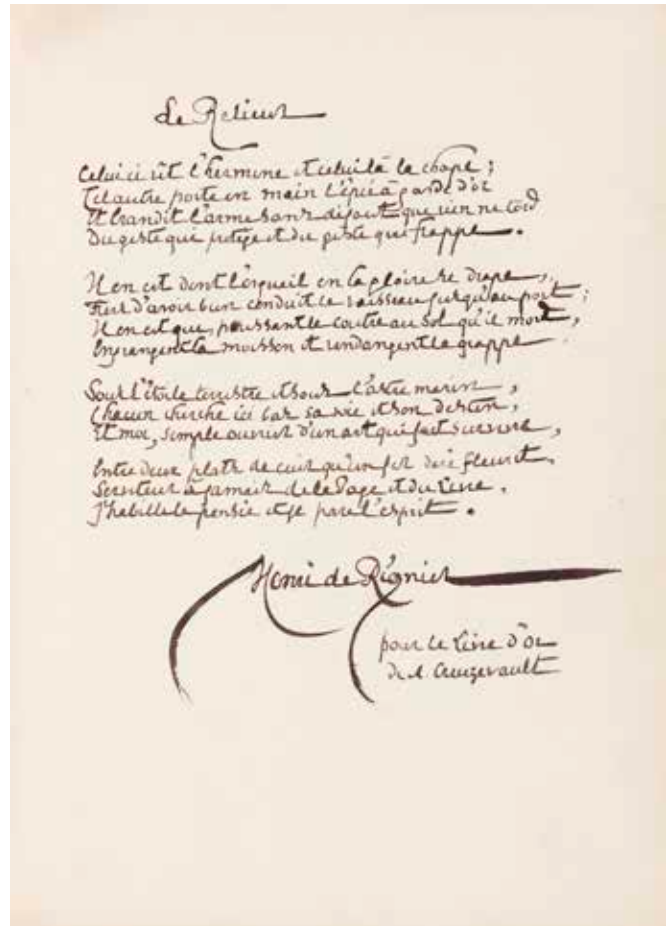 Le Relieur
Celui ci vêt l'hermine et celui là la chape ;
Tel autre porte en main l'épée à garde d'or
Et brandit l'arme sans défaut que rien ne tord
Du geste qui protège et du geste qui frappe.
Il en est dont l'orgueil en la gloire se drape,
Fiers d'avoir bien conduit le vaisseau jusqu'au port ;
Il en est que, poussant le coutre au sol qu'il mord,
Engrangent la moisson et vendangent la grappe
Sous l'étoile terrestre et sous l'astre marin,
Chacun cherche ici bas sa vie et son destin,
Et moi, simple ouvrier d'un art qui fait survivre,
Entre deux plats de cuir qu'un fer doré fleurit,
Serviteur à jamais de la Page et du Livre,
J'habille la pensée et je pare l'esprit.
Henri de Régnier
pour le Livre d'or
de A. Cruzevault